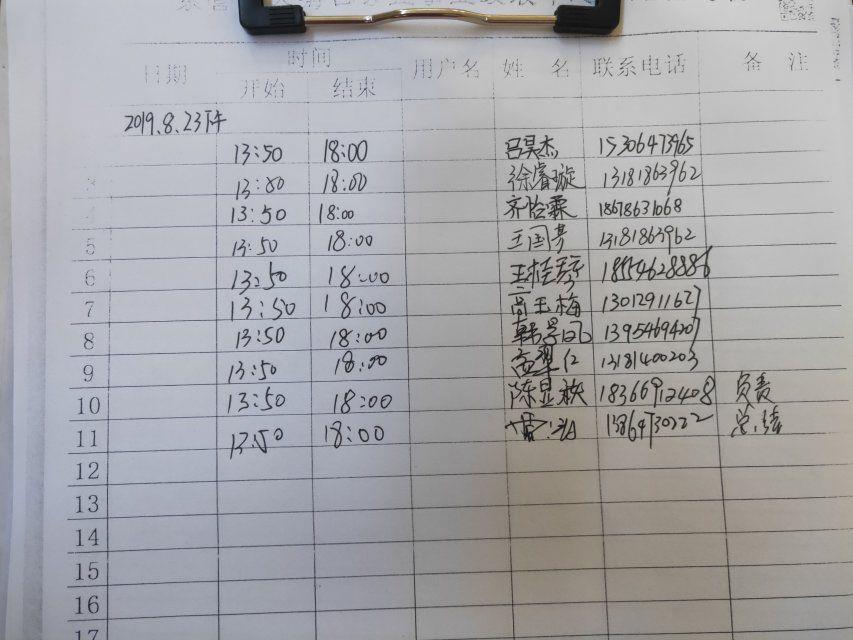 时间
日期 开始 结束 用户名 姓 名 联系电话 备 注
2019.8.23下午
13:50 18:00 吕昊杰 15306473965
3 13:50 18:00 徐睿璇 13181863962
4 13:50 18:00 齐怡霖 18678631668
5 13:50 18:00 王国芳 13181863962
6 13:50 18:00 王桂琴 18554628886
7 13:50 18:00 高玉梅 13012911627
8 13:50 18:00 韩景凤 13954694207
9 13:50 18:00 13181400203
10 13:50 18:00 陈显秩 18366912408 负责
11 13:50 18:00
12
13
14
15
16
17